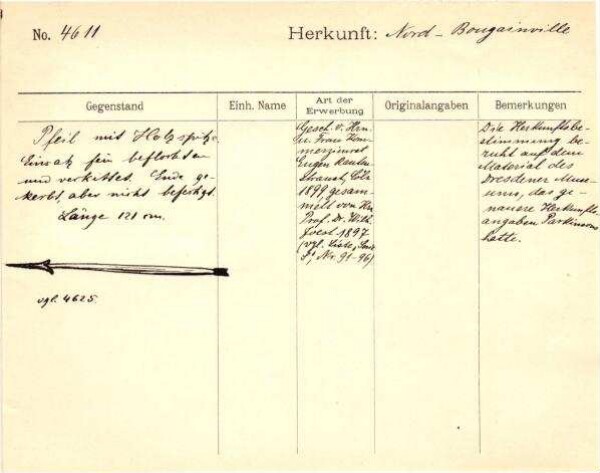 No. 4611
Herkunft: Nord-Bougainville
Gegenstand
Einh. Name
Art der Erwerbung
Originalangaben
Bemerkungen
Pfeil mit Holzspitze,
Einsatz fein beflochten
und verkittet. Ende ge-
kerbt, aber nicht befestigt.
Länge 121 cm.
vgl. 4625.
Gesch. v. Hrn.
u. Frau Kom-
merzienrat
Eugen Rauten-
strauch, Cöln
1899, gesam-
melt von Hn.
Prof. Dr. Wilh.
Joest 1897
(vgl. Liste,
Nr. 91-96)
Die Herkunftsbe-
stimmung be-
ruht auf dem
Material des
Dresdener Muse-
ums, das ge-
nauere Herkunfts-
angaben Parkinsons
hatte.